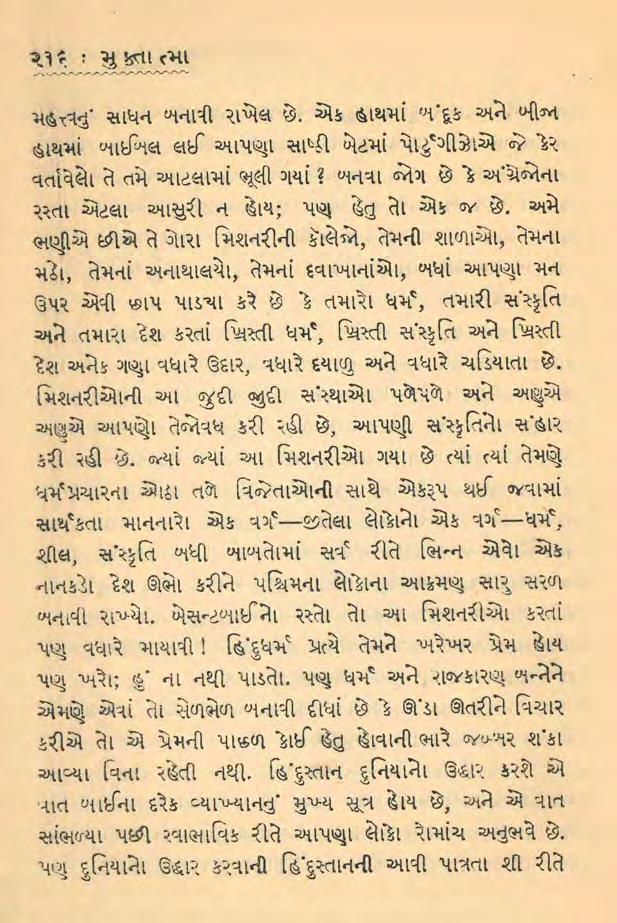 ૨૧૬ : મુક્તાત્મા
મહત્ત્વનું સાધન બનાવી રાખેલ છે. એક હાથમાં બંદૂક અને બીજા
હાથમાં બાઈબલ લઈ આપણા સાષ્ટી બેટમાં પોર્ટુગીઝોએ જે કેર
વર્તાવેલો તે તમે આટલામાં ભૂલી ગયાં ? બનવા જોગ છે કે અંગ્રેજોના
રસ્તા એટલા આસુરી ન હોય; પણ હેતુ તો એક જ છે. અમે
ભણીએ છીએ તે ગોરા મિશનરીની કૉલેજો, તેમની શાળાઓ, તેમના
મઠો, તેમનાં અનાથાલયો, તેમનાં દવાખાનાંઓ, બધાં આપણા મન
ઉપર એવી છાપ પાડ્યા કરે છે કે તમારો ધર્મ, તમારી સંસ્કૃતિ
અને તમારા દેશ કરતાં ખ્રિસ્તી ધર્મ, ખ્રિસ્તી સંસ્કૃતિ અને ખ્રિસ્તી
દેશ અનેક ગણા વધારે ઉદાર, વધારે દયાળુ અને વધારે ચડિયાતા છે.
મિશનરીઓની આ જુદી જુદી સંસ્થાઓ પળેપળે અને અણુએ
અણુએ આપણો તેજોવધ કરી રહી છે, આપણી સંસ્કૃતિનો સંહાર
કરી રહી છે. જ્યાં જ્યાં આ મિશનરીઓ ગયા છે ત્યાં ત્યાં તેમણે
ધર્મપ્રચારના ઓઠા તળે વિજેતાઓની સાથે એકરૂપ થઈ જવામાં
સાર્થકતા માનનારો એક વર્ગ—જીતેલા લોકોનો એક વર્ગ—ધર્મ,
શીલ, સંસ્કૃતિ બધી બાબતોમાં સર્વ રીતે ભિન્ન એવો એક
નાનકડો દેશ ઊભો કરીને પશ્ચિમના લોકોના આક્રમણ સારુ સરળ
બનાવી રાખ્યો. બેસન્ટબાઈનો રસ્તો તો આ મિશનરીઓ કરતાં
પણ વધારે માયાવી ! હિંદુધર્મ પ્રત્યે તેમને ખરેખર પ્રેમ હોય
પણ ખરો; હું ના નથી પાડતો. પણ ધર્મ અને રાજકારણ બન્નેને
એમણે એવાં તો સેળભેળ બનાવી દીધાં છે કે ઊંડા ઊતરીને વિચાર
કરીએ તો એ પ્રેમની પાછળ કોઈ હેતુ હોવાની ભારે જબ્બર શંકા
આવ્યા વિના રહેતી નથી. હિંદુસ્તાન દુનિયાનો ઉદ્ધાર કરશે એ
વાત બાઈના દરેક વ્યાખ્યાનનું મુખ્ય સૂત્ર હોય છે, અને એ વાત
સાંભળ્યા પછી સ્વાભાવિક રીતે આપણા લોકો રોમાંચ અનુભવે છે.
પણ દુનિયાનો ઉદ્ધાર કરવાની હિંદુસ્તાનની આવી પાત્રતા શી રીતે